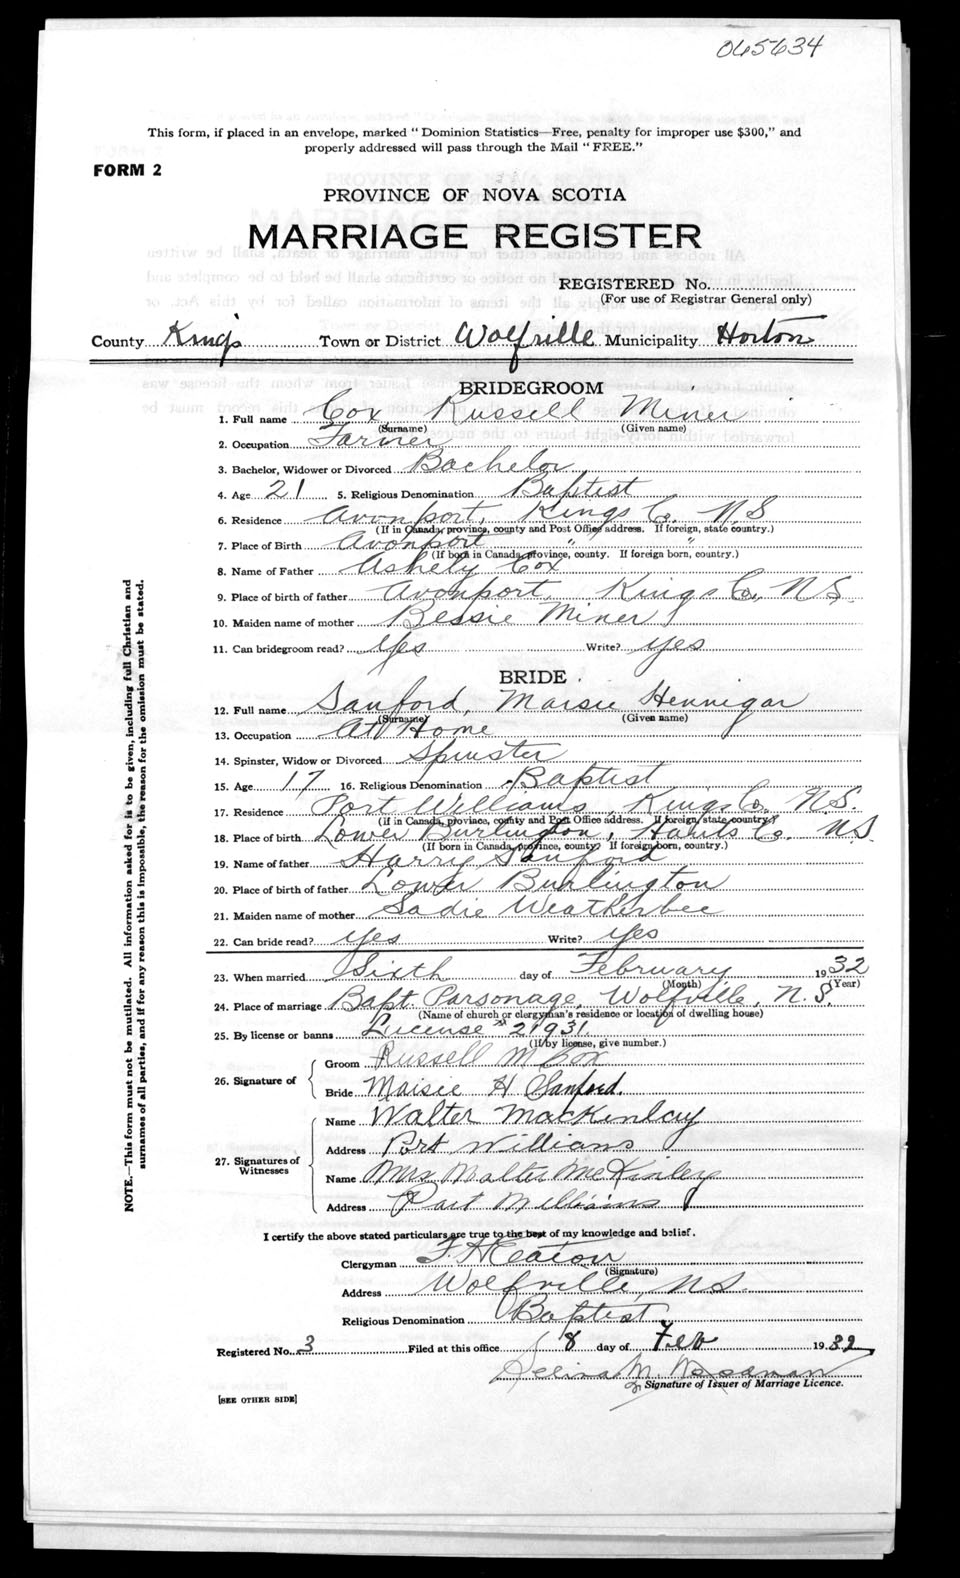 065634
This form, if placed in an envelope, marked "Dominion Statistics—Free, penalty for improper use $300," and
properly addressed will pass through the Mail "FREE."
FORM 2
PROVINCE OF NOVA SCOTIA
MARRIAGE REGISTER
REGISTERED No.
(For use of Registrar General only)
County Kings Town or District Wolfville Municipality Horton
BRIDEGROOM
1. Full name Cox Russell Miner
(Surname) (Given name)
2. Occupation Farmer
3. Bachelor, Widower or Divorced Bachelor
4. Age 21 5. Religious Denomination Baptist
6. Residence Avonport, Kings Co. N.S
(If in Canada, province, county and Post Office address. If foreign, state country.)
7. Place of Birth Avonport " "
(If born in Canada, province, county. If foreign born, country.)
8. Name of Father Ashely Cox
9. Place of birth of father Avonport, Kings Co, N.S.
10. Maiden name of mother Bessie Miner
11. Can bridegroom read? Yes Write? yes
BRIDE
12. Full name Sanford, Maisie Hennigar
(Surname) (Given name)
13. Occupation At Home
14. Spinster, Widow or Divorced Spinster
15. Age 17 16. Religious Denomination Baptist
17. Residence Port Williams Kings Co. N.S.
(If in Canada, province, county and Post Office address. If foreign, state country.)
18. Place of birth Lower Burlington, Hants Co. N.S.
(If born in Canada, province, county? If foreign born, country.)
19. Name of father Harry Sanford
20. Place of birth of father Lower Burlington
21. Maiden name of mother Sadie Weatherbee
22. Can bride read? yes Write? yes
23. When married Sixth day of February 1932
(Month) (Year)
24. Place of marriage Bapt. Parsonage, Wolfville, N.S.
(Name of church or clergyman's residence or location of dwelling house)
25. By license or banns License 21931
(If by license, give number.)
26. Signature of
Groom Russell M Cox
Bride Maisie H Sanford.
27. Signatures of Witnesses
Name Walter MacKinlay
Address Port Williams
Name Mrs Walter McKinley
Address Port Williams
I certify the above stated particulars are true to the best of my knowledge and belief.
Clergyman F. H Eaton
(Signature)
Address Wolfville, N.S.
Religious Denomination Baptist
Registered No. 3 Filed at this office 8 day of Feb 1932
M.
Signature of Issuer of Marriage Licence.
[SEE OTHER SIDE]
NOTE.—This form must not be mutilated. All information asked for is to be given, including full Christian and
surnames of all parties, and if for any reason this is impossible, the reason for the omission must be stated.